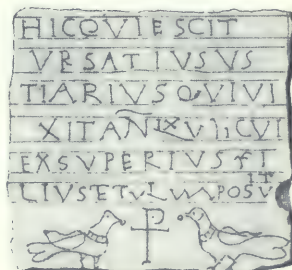 HIC QVIESCIT
VRSATIVS VS
TIARIVS QVI VI
XIT AN LXVII CVI
EXSVPERIVS FI
LIVS ET VLVM POSVIT